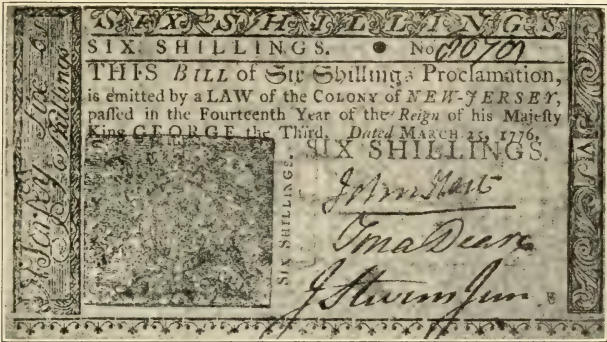 SIX SHILLINGS
SIX SHILLINGS. No 80701
THIS BILL of Six Shillings Proclamation,
is emitted by a LAW of the COLONY of NEW-JERSEY,
paſſed in the Fourteenth Year of the Reign of his Majeſty
King GEORGE the Third. Dated MARCH 25, 1776.
SIX SHILLINGS.
SIX SHILLINGS.
John Hart
Deare
J Stevens Jun
Shillings